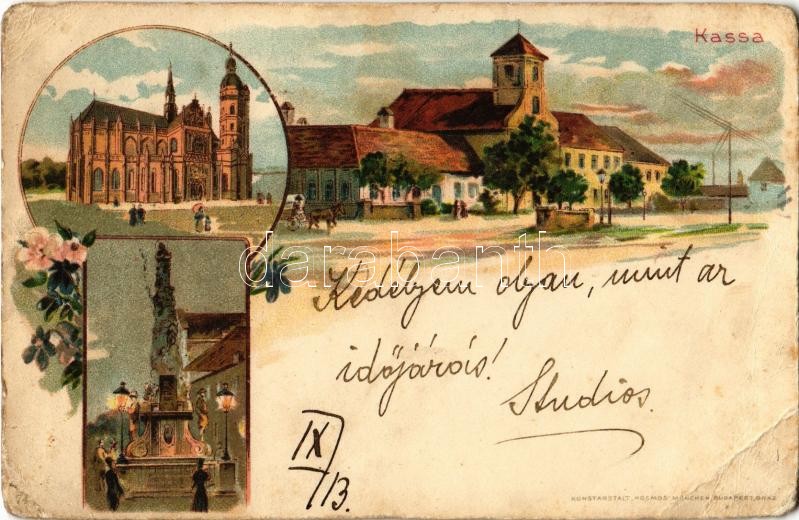 Kassa
darabanth
Kedélyem olyan, mint az
időjárás!
Studios.
IX
/13.
KUNSTANSTALT „KOSMOS" MÜNCHEN, BUDAPEST, GRAZ